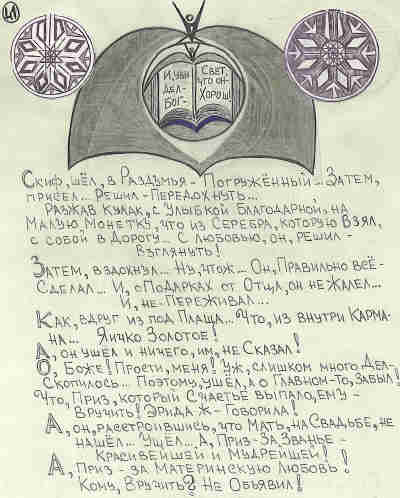 И, УВИ
ДЕЛ-
БОГ-
СВЕТ,
ЧТО ОН-
ХОРОШ!
СКИФ, ШЁЛ, В РАЗДУМЬЯ - ПОГРУЖЁННЫЙ... ЗАТЕМ,
ПРИСЕЛ... РЕШИЛ - ПЕРЕДОХНУТЬ...
РАЗЖАВ КУЛАК, С УЛЫБКОЙ БЛАГОДАРНОЙ, НА
МАЛУЮ МОНЕТКУ, ЧТО ИЗ СЕРЕБРА, КОТОРУЮ ВЗЯЛ,
С СОБОЙ В ДОРОГУ... С ЛЮБОВЬЮ, ОН, РЕШИЛ -
ВЗГЛЯНУТЬ!
ЗАТЕМ, ВЗДОХНУЛ... НУ, ЧТОЖ... ОН, ПРАВИЛЬНО ВСЁ-
СДЕЛАЛ... И, О ПОДАРКАХ ОТ ОТЦА, ОН НЕ ЖАЛЕЛ...
И, НЕ-ПЕРЕЖИВАЛ...
КАК, ВДРУГ ИЗ ПОД ПЛАЩА... ЧТО, ИЗ ВНУТРИ КАРМА-
НА... ЯИЧКО ЗОЛОТОЕ!
А, ОН УШЁЛ И НИЧЕГО, ИМ, НЕ СКАЗАЛ!
О, БОЖЕ! ПРОСТИ, МЕНЯ! УЖ, СЛИШКОМ МНОГО ДЕЛ-
СКОПИЛОСЬ... ПОЭТОМУ, УШЁЛ, А О ГЛАВНОМ-ТО, ЗАБЫЛ!
ЧТО, ПРИЗ, КОТОРЫЙ СЧАСТЬЕ ВЫПАЛО, ЕМУ -
ВРУЧИТЬ! ЭРИДА Ж - ГОВОРИЛА!
А, ОН, РАССТРОИВШИСЬ, ЧТО МАТЬ, НА СВАДЬБЕ, НЕ
НАШЁЛ... УШЁЛ... А, ПРИЗ - ЗА ЗВАНЬЕ -
КРАСИВЕЙШЕЙ И МУДРЕЙШЕЙ!
А, ПРИЗ - ЗА МАТЕРИНСКУЮ ЛЮБОВЬ!
КОМУ, ВРУЧИТЬ? НЕ ОБЪЯВИЛ!